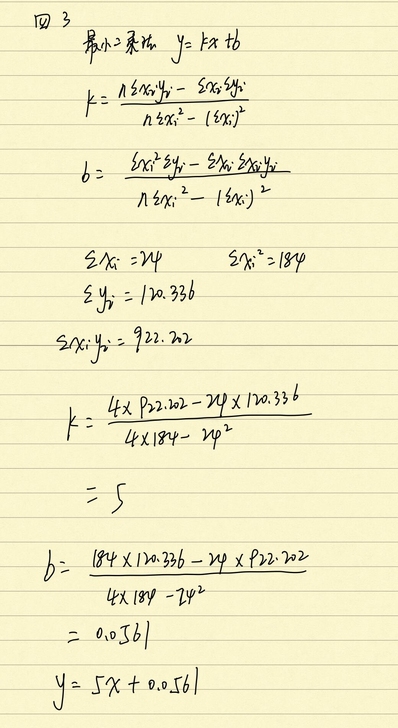 四 3
最小二乘法 y=kx+b
k= nΣxiyi - ΣxiΣyi / nΣxi² - (Σxi)²
b= Σxi²Σyi - ΣxiΣxiyi / nΣxi² - (Σxi)²
Σxi=24 Σxi²=184
Σyi=120.336
Σxiyi=922.202
k= 4×922.202-24×120.336 / 4×184-24²
=5
b= 184×120.336-24×922.202 / 4×184-24²
=0.0561
y=5x+0.0561